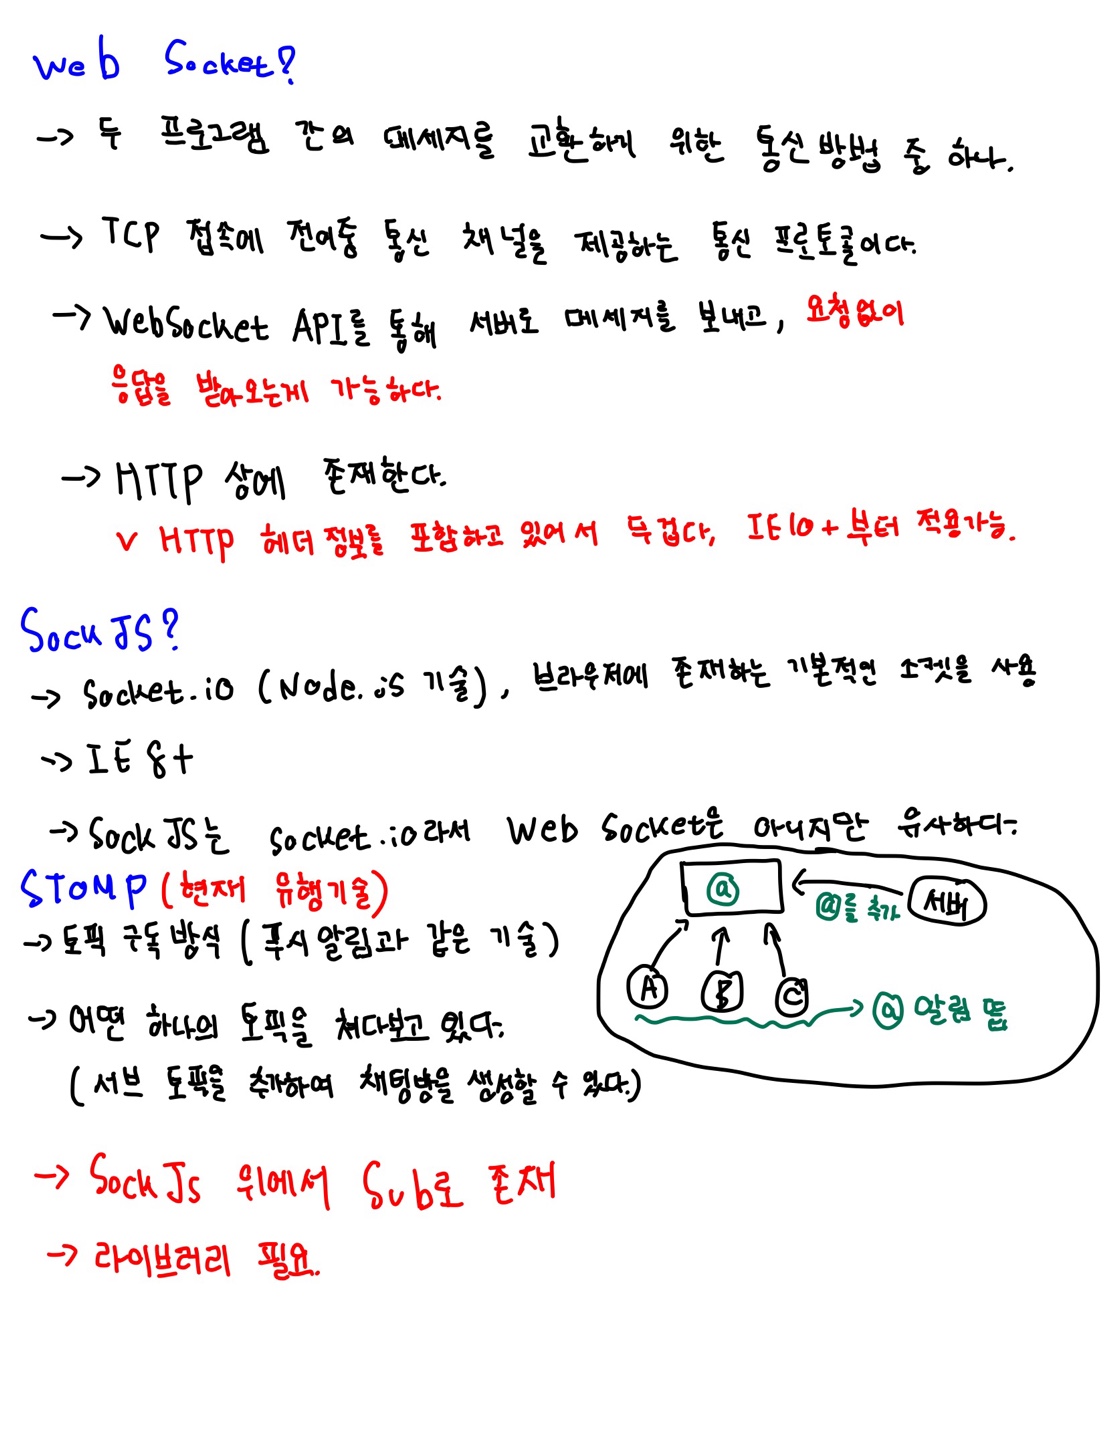 Web Socket?
-> 두 프로그램 간의 메세지를 교환하기 위한 통신 방법 중 하나.
-> TCP 접속에 전이중 통신 채널을 제공하는 통신 프로토콜이다.
-> WebSocket API를 통해 서버로 메세지를 보내고, 요청없이
응답을 받아오는게 가능하다.
-> HTTP 상에 존재한다.
v HTTP 헤더 정보를 포함하고 있어서 무겁다, IE10+부터 적용가능.
SockJS?
-> Socket.io (Node.js 기술), 브라우저에 존재하는 기본적인 소켓을 사용
-> IE 8+
-> SockJS는 socket.io라서 Web Socket은 아니지만 유사하다.
STOMP (현재 유행기술)
-> 토픽 구독 방식 (푸시알림과 같은 기술)
-> 어떤 하나의 토픽을 쳐다보고 있다.
(서브 토픽을 추가하여 채팅방을 생성할 수 있다.)
-> SockJs 위에서 Sub로 존재
-> 라이브러리 필요.
ⓐ
ⓐ를 추가
서버
A
B
C
-> ⓐ 알림 뜸